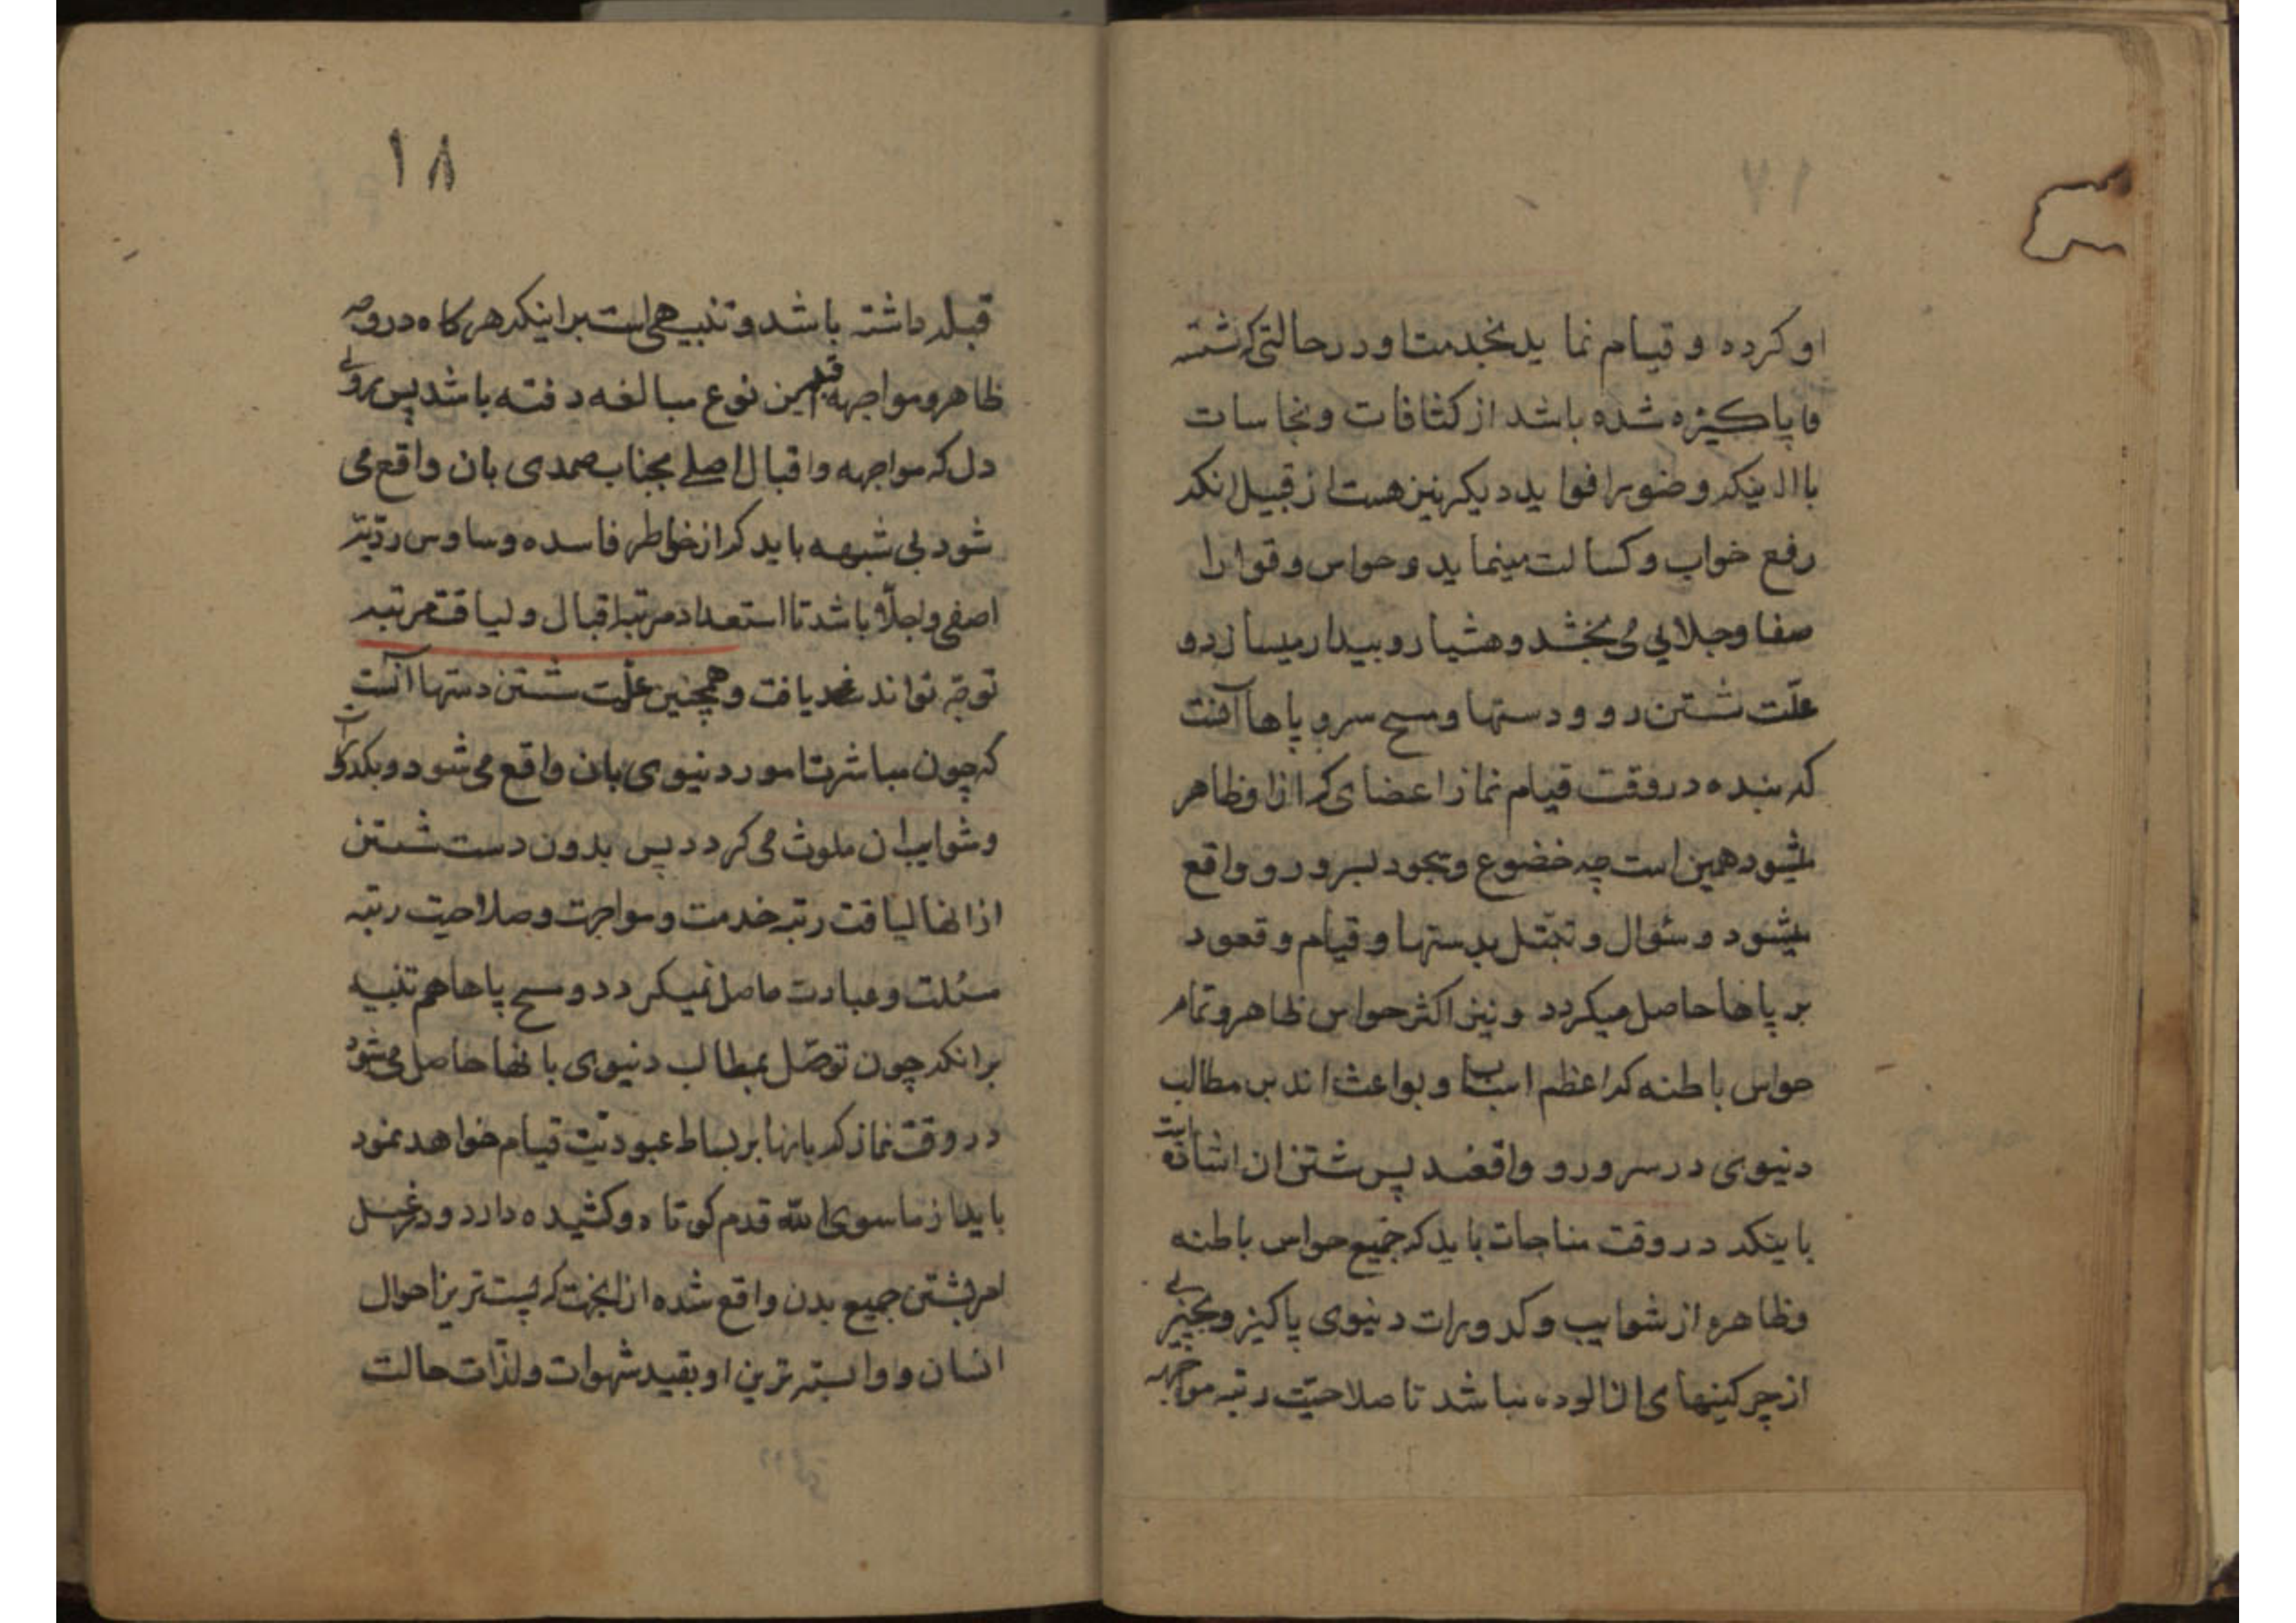 او کرده و قیام نماید بخدمت او در حالتی که شسته
و پاکیزه شده باشد از کثافات و نجاسات
با اینکه وضو را فواید دیگر نیز هست از قبیل انکه
رفع خواب و کسالت مینماید و حواس و قوا را
صفا و جلایی می بخشد و هشیار و بیدار میسازد و
علّت شستن رو و دستها و مسح سر و پاها آنست
که بنده در وقت قیام نماز اعضای که از او ظاهر
میشود همین است چه خضوع و سجود بسر و رو واقع
میشود و سئوال و تبتّل بدستها و قیام و قعود
بر پاها حاصل میکردد و نیز اکثر حواس ظاهر و تمام
حواس باطنه که اعظم اسباب و بواعث اند بر مطالب
دنیوی در سر و رو واقعند پس شستن ان اشاره است
باینکه در وقت مناجات باید که جمیع حواس باطنه
و ظاهره از شوایب و کدورات دنیوی پاکیزه و بچیزی
از چرکینهای ان الوده نباشد تا صلاحیّت رتبه مواجهه
۱۸
قبله داشته باشد و تنبیهی است بر اینکه هر کاه در روی
ظاهر و مواجهه قبله این نوع مبالغه رفته باشد پس بروی
دل که مواجهه و اقبال اصلی بجناب صمدی بان واقع می
شود بی شبهه باید که از خواطر فاسده و وساوس ردیّه
اصفی و اجلا باشد تا استعداد مرتبه اقبال و لیاقت مرتبه
توجّه تواند یافت و همچنین علّت شستن دستها آنست
که چون مباشرت امور دنیوی بان واقع می شود و بکدورات
و شوایب ان ملوث می کردد پس بدون دست شستن
از انها لیاقت رتبه خدمت و مواجهت و صلاحیت رتبه
مسئلت و عبادت حاصل نمیکردد و مسح پاها هم تنبیه
بر انکه چون توصّل بمطالب دنیوی بانها حاصل می شود
در وقت نماز که بانها بر بساط عبودیّت قیام خواهد نمود
باید از ما سوی الله قدم کوتاه و کشیده دارد و در غسل
امر بشستن جمیع بدن واقع شده از انجهت که پست ترین احوال
انسان و وابسته ترین او بقید شهوات و لذّات حالت